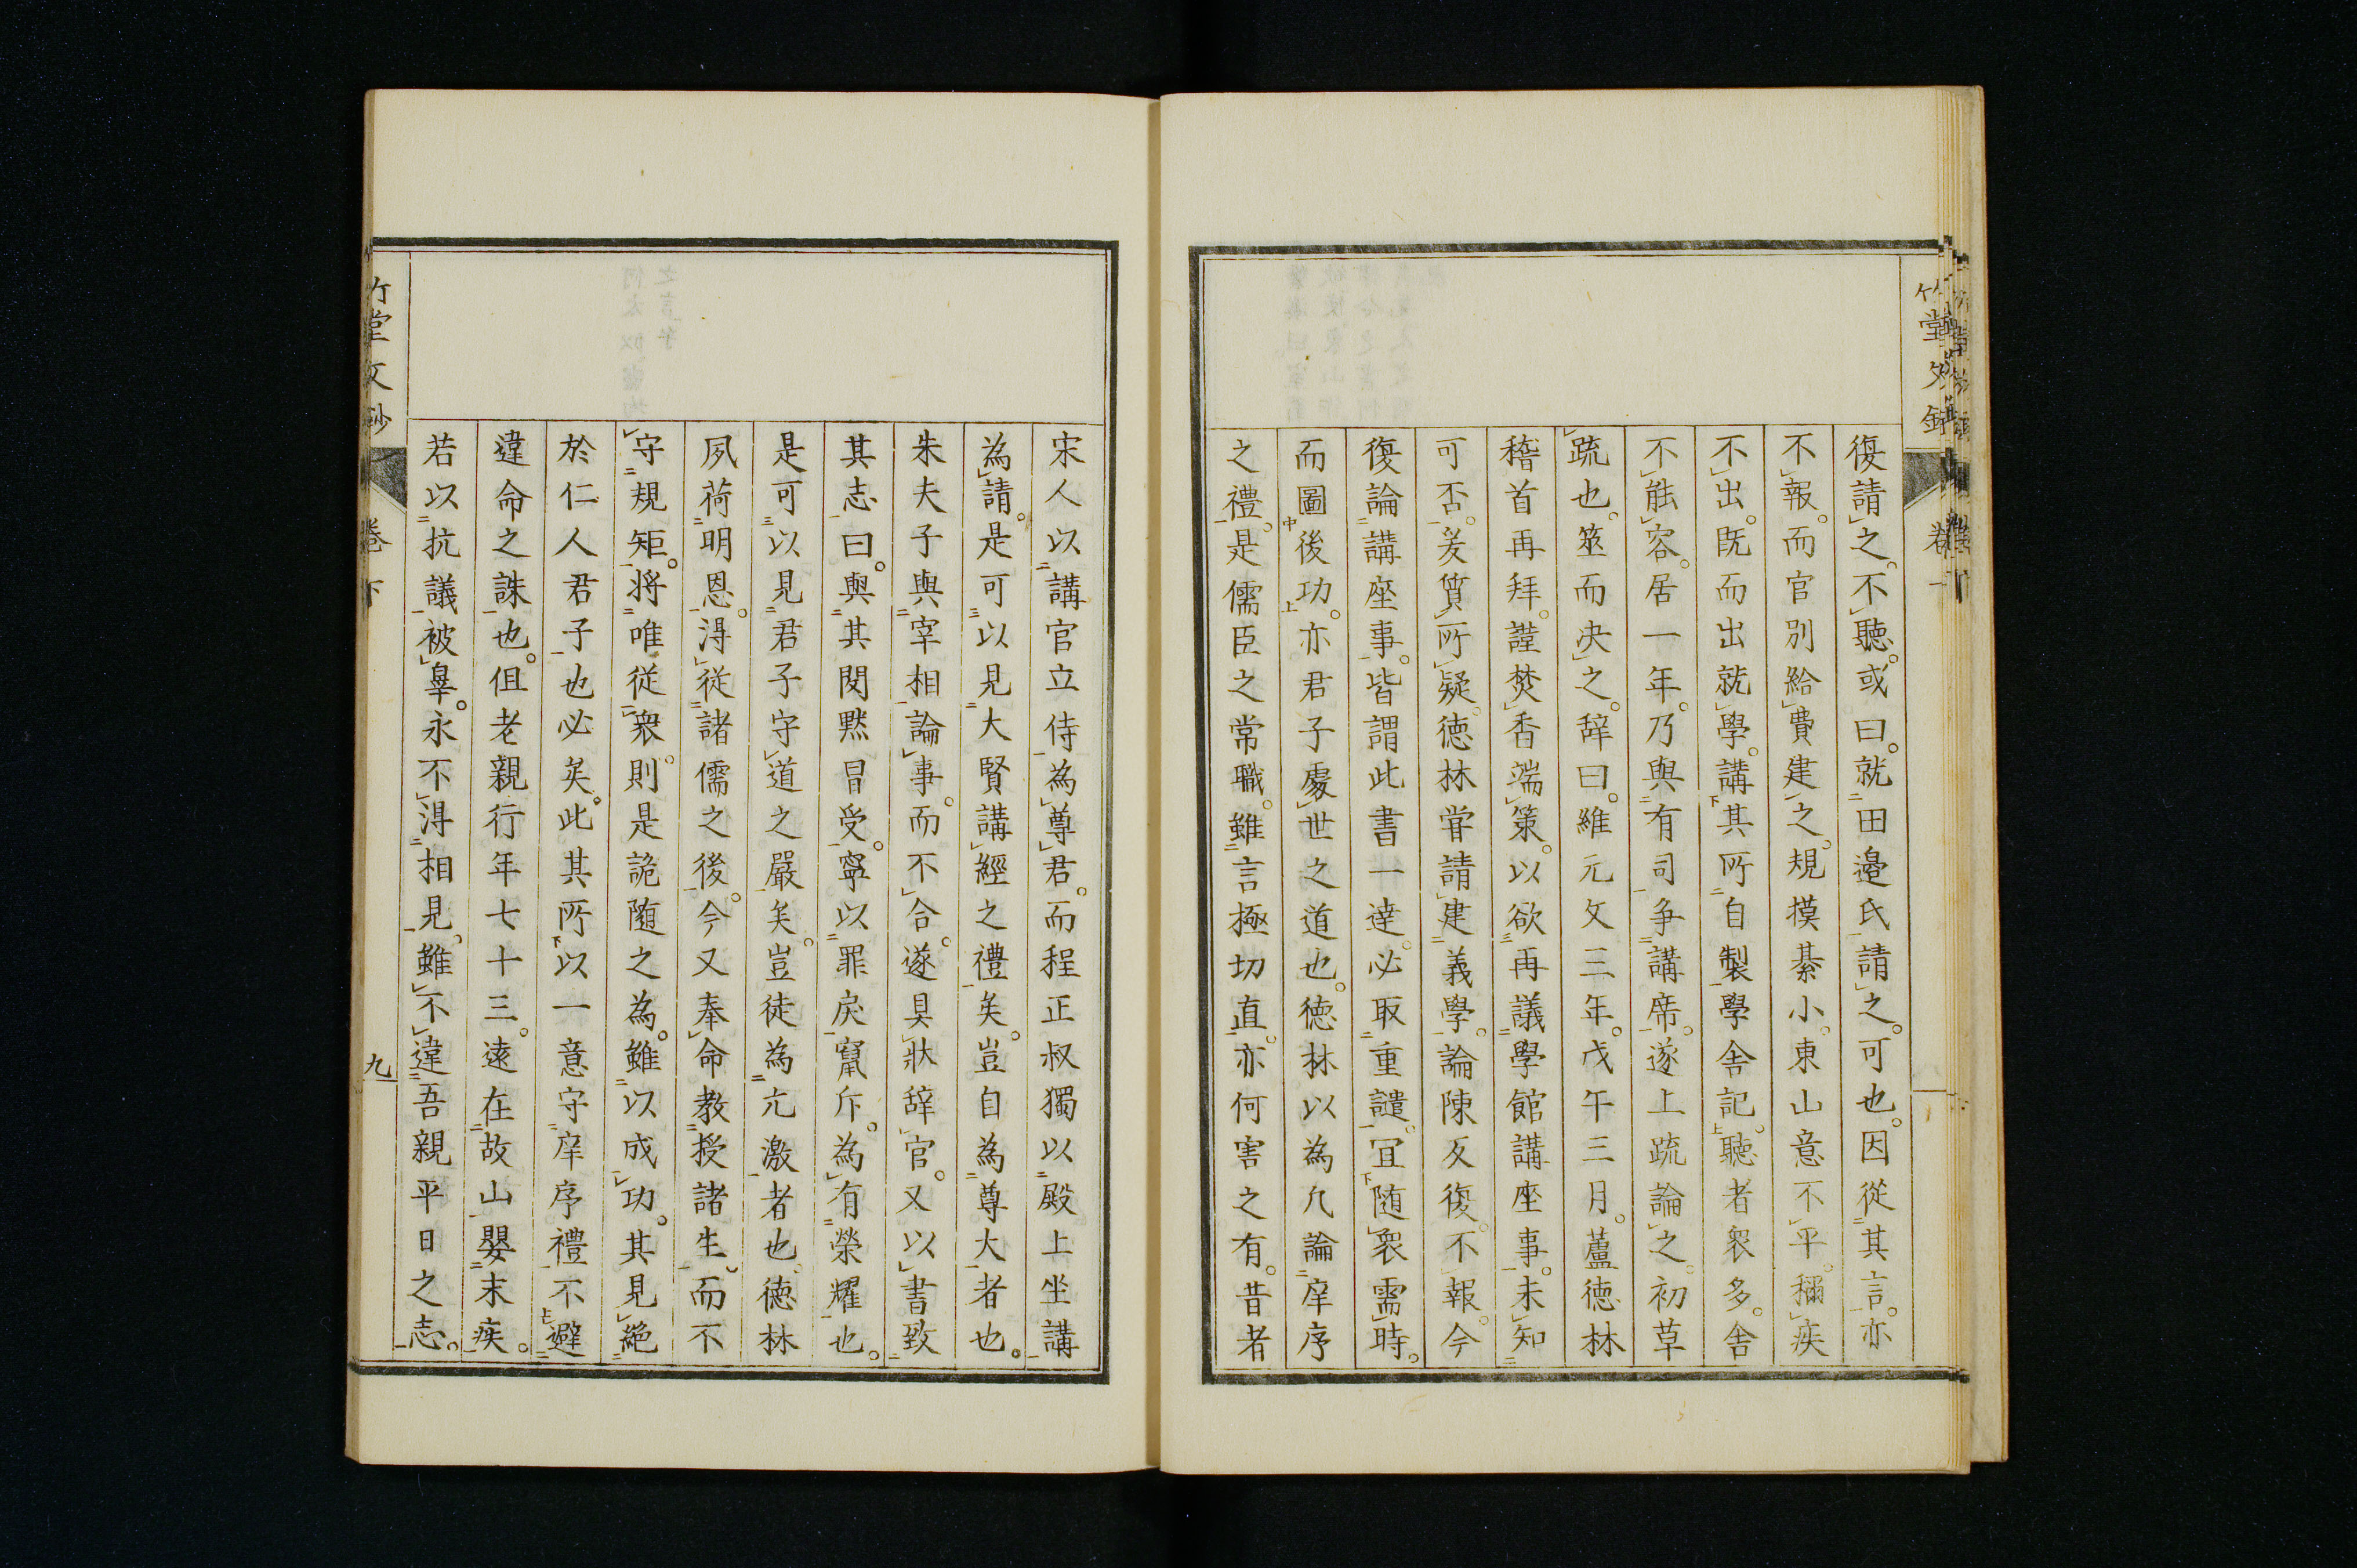 復請之。不聽。或曰。就田邉氏請之。可也。因從其言。亦
不報。而官別給費建之。規摸綦小。東山意不平。稱疾
不出。既而出就學。講其所自製學舎記。聽者衆多。舎
不能容。居一年。乃與有司争講席。遂上疏論之。初草
疏也。筮而决之。辞曰。維元文三年。戊午三月。蘆徳林
稽首再拜。謹焚香端策。以欲再議學館講座事。未知
可否。爰質所疑。徳林甞請建義學。論陳反復。不報。今
復論講座事。皆謂此書一達。必取重譴。冝随衆需時。
而圖後功。亦君子處世之道也。徳林以為凢論庠序
之禮。是儒臣之常職。雖言極切直。亦何害之有。昔者
宋人以講官立侍為尊君。而程正叔獨以殿上坐講
為請。是可以見大賢講經之禮矣。豈自為尊大者也。
朱夫子與宰相論事。而不合。遂具狀辞官。又以書致
其志曰。與其閔黙冒受。寧以罪戾竄斥。為有榮耀也。
是可以見君子守道之嚴矣。豈徒為亢激者也。徳林
夙荷明恩。淂從諸儒之後。今又奉命教授諸生。而不
守規矩。将唯従衆。則是詭随之為。雖以成功。其見絶
於仁人君子也必矣。此其所以一意守庠序禮不避
違命之誅也。但老親行年七十三。遠在故山嬰末疾。
若以抗議被辠。永不淂相見。雖不違吾親平日之志。
竹堂文鈔
卷下
九